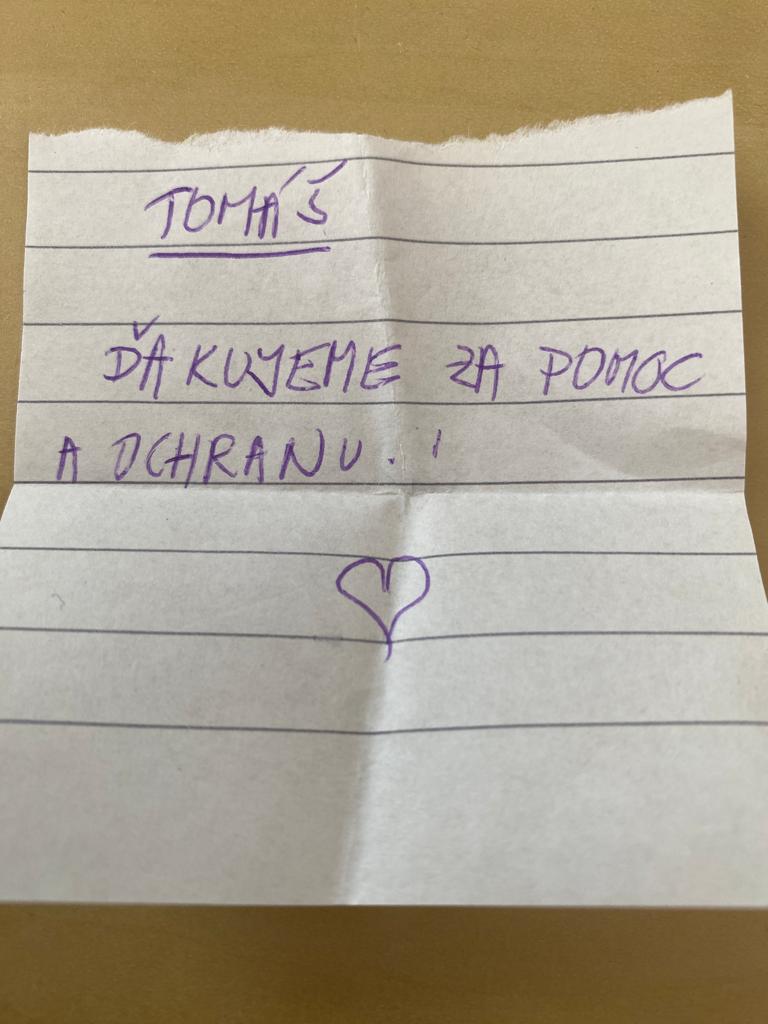 TOMÁŠ
ĎAKUJEME ZA POMOC
A OCHRANU.